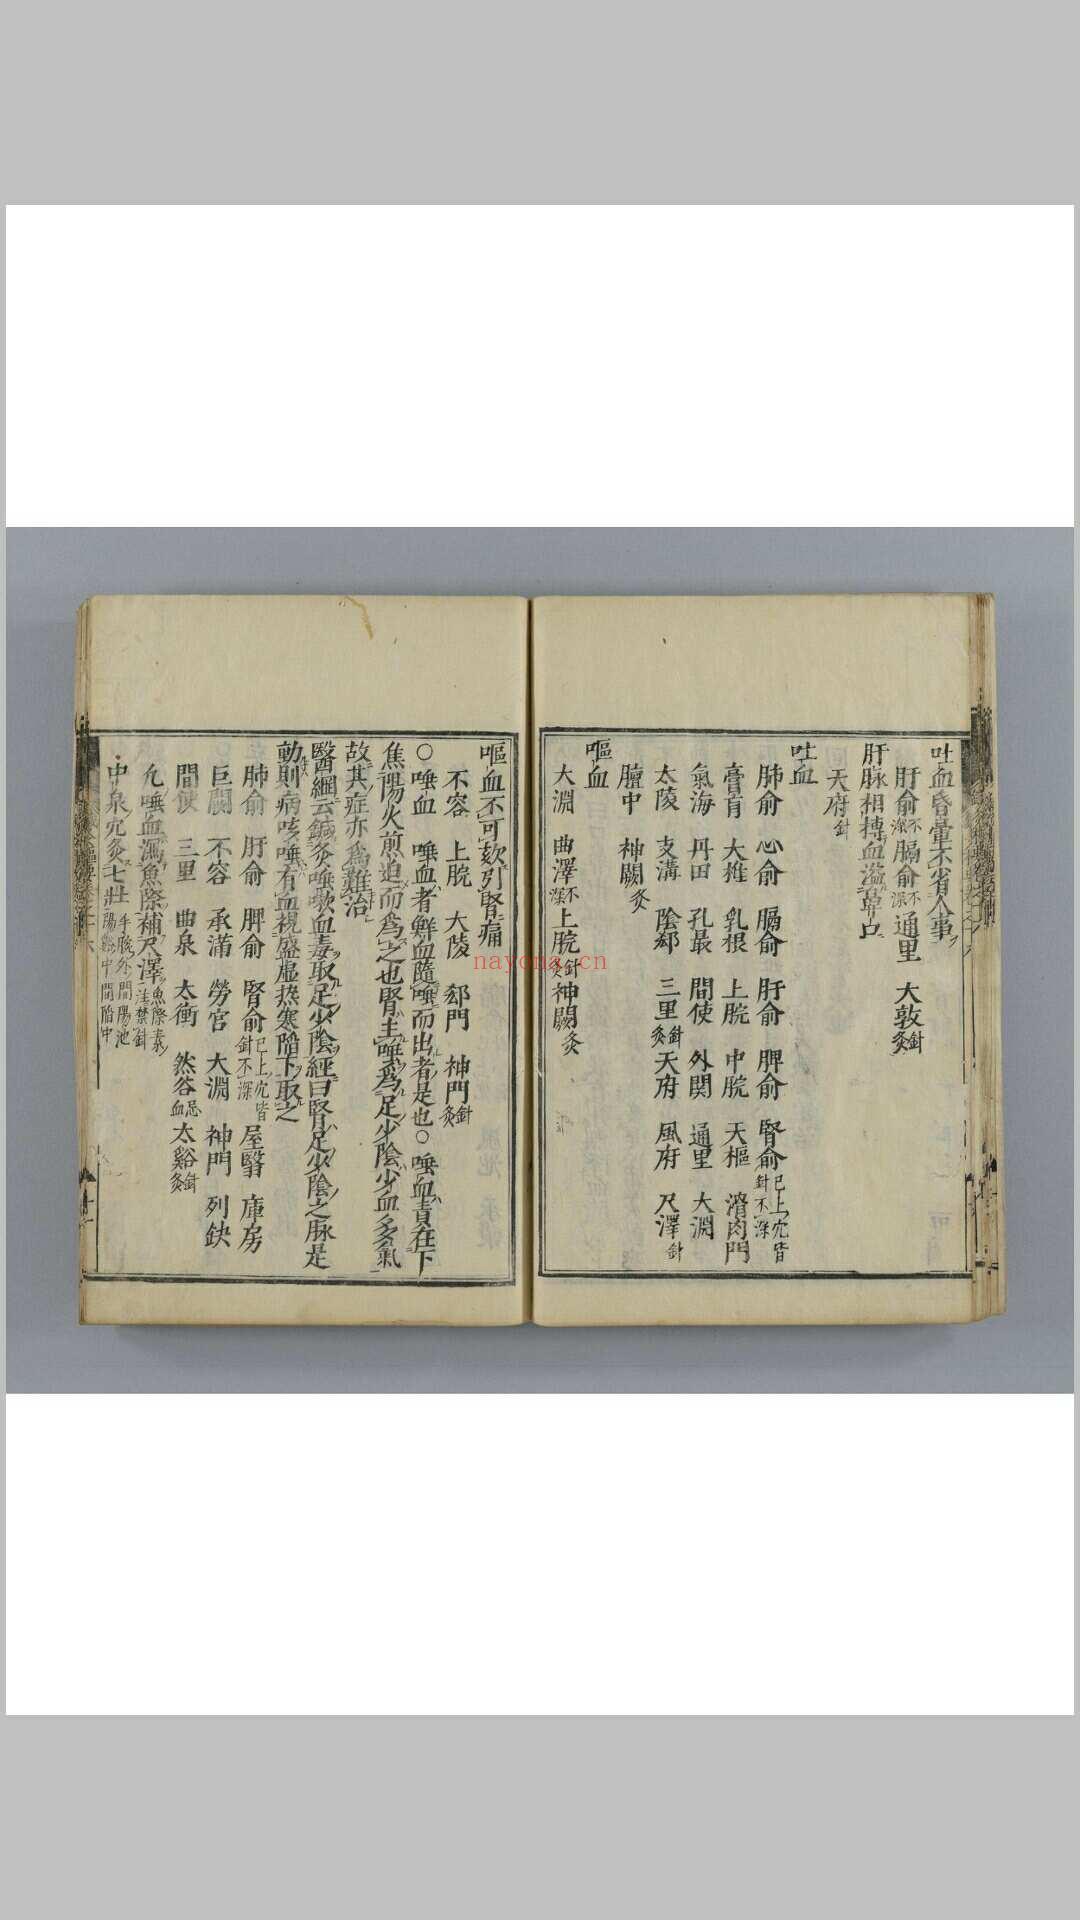 吐血昏暈不省人事
肝俞不深膈俞不深通里 大敦針灸
肝脉相搏血溢鼻口
天府針
吐血
肺俞 心俞 膈俞 肝俞 脾俞 腎俞已上穴皆針不深
膏肓 大椎 乳根 上脘 中脘 天樞 滑肉門
氣海 丹田 孔最 間使 外関 通里 大淵
太陵 支溝 陰郄 三里針灸天府 風府 尺澤針
膻中 神闕灸
嘔血
大淵 曲澤不深上脘針灸神闕灸
嘔血不可刻引腎痛
不容 上脘 大陵 郄門 神門針灸
○唾血 唾血者鮮血隨唾而出者是也○唾血責在下
焦陽火煎迫而為之也腎主唾為足少陰少血多氣
故其症亦為難治
醫綱云鍼灸唾嗽血毒取足少陰經曰腎足少陰之脉是
動則病咳唾有血視盛虛热寒陷下取之
肺俞 肝俞 脾俞 腎俞已上穴皆針不深屋翳 庫房
巨闕 不容 承滿 勞宮 大淵 神門 列缺
間使 三里 曲泉 太衝 然谷忌血太谿針灸
九唾血瀉魚際補尺澤
中泉穴灸七壯手腕外間陽池陽谿中間陷中
nayona.cn